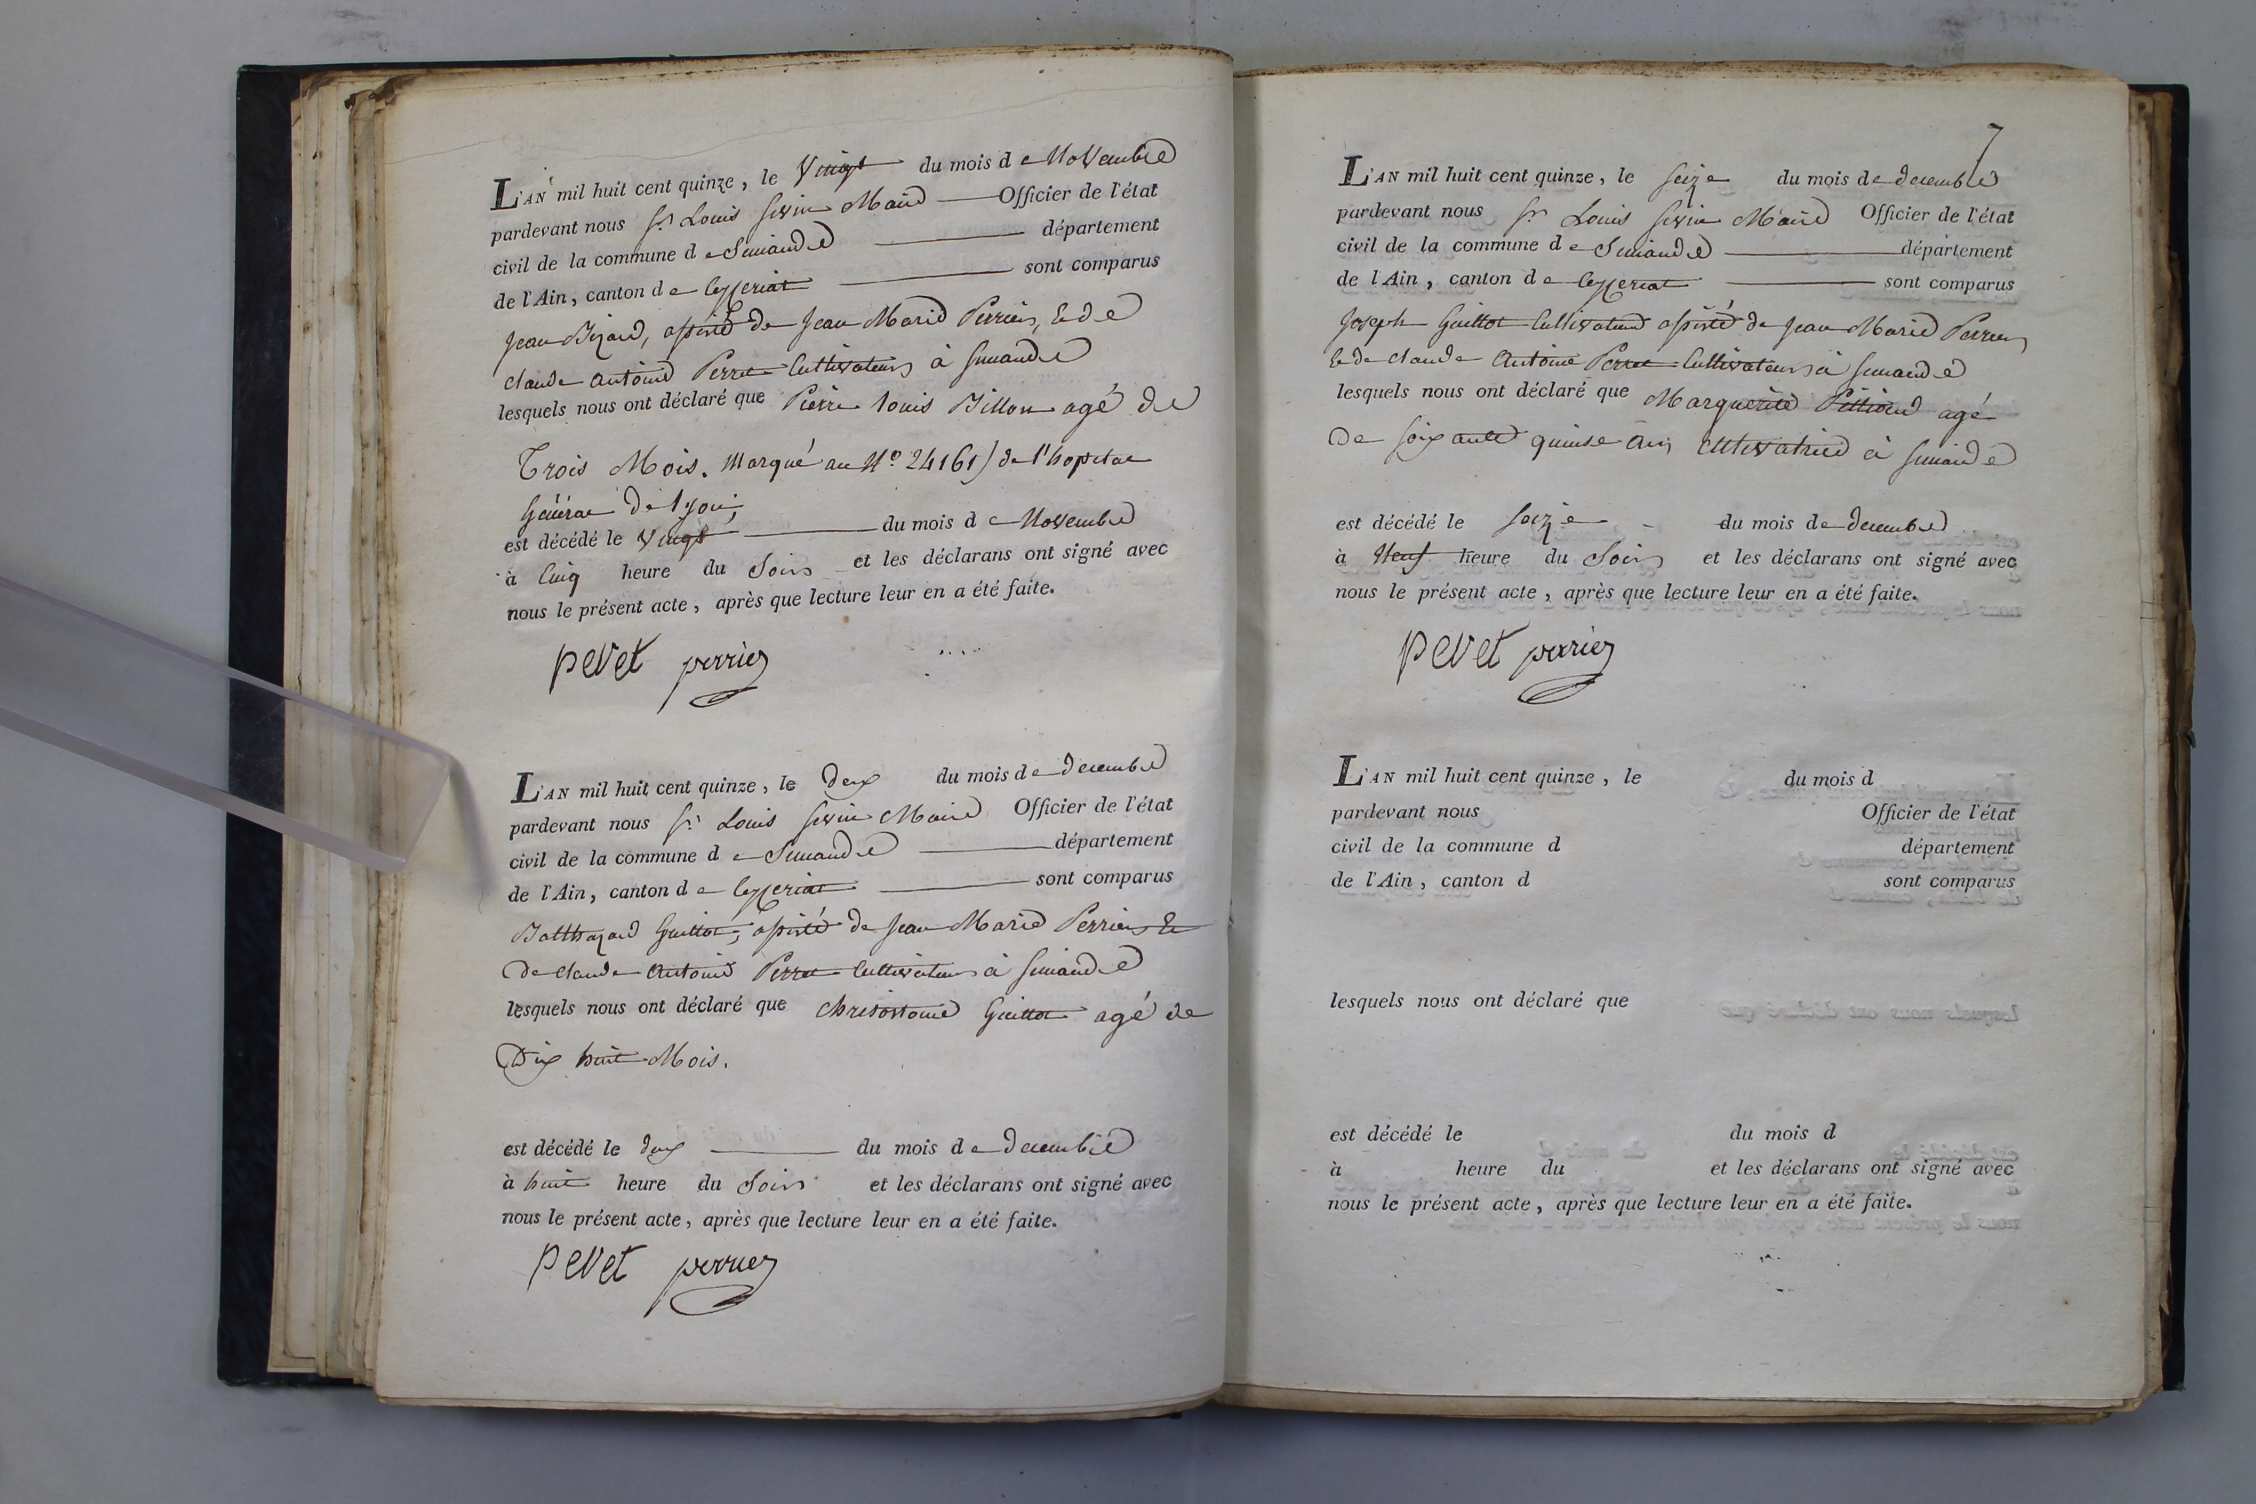 L'AN mil huit cent quinze, le Vingt du mois de Novembre
pardevant nous Sr. Louis Sevin Maire Officier de l'état
civil de la commune de Simandre département
de l'Ain, canton de Ceyzeriat sont comparus
Jean Bizard, assisté de Jean Marie Perrier, & de
Claude Antoine Perret Cultivateurs à Simandre
lesquels nous ont déclaré que Pierre Louis Billon agé de
Trois Mois. Marqué au No. 24161) de l'hopital
Général de Lyon,
est décédé le Vingt du mois de Novembre
à Cinq heure du Soir et les déclarans ont signé avec
nous le présent acte, après que lecture leur en a été faite.
pevet perrier
L'AN mil huit cent quinze, le deux du mois de decembre
pardevant nous Sr. Louis Sevin Maire Officier de l'état
civil de la commune de Simandre département
de l'Ain, canton de Ceyzeriat sont comparus
Balthazard Guillot, assisté de Jean Marie Perrier &
de Claude Antoine Perret Cultivateurs à Simandre
lesquels nous ont déclaré que Chrisostome Guillot agé de
Dix huit Mois.
est décédé le deux du mois de decembre
à huit heure du Soir et les déclarans ont signé avec
nous le présent acte, après que lecture leur en a été faite.
pevet perrier
7
L'AN mil huit cent quinze, le seize du mois de decembre
pardevant nous Sr. Louis Sevin Maire Officier de l'état
civil de la commune de Simandre département
de l'Ain, canton de Ceyzeriat sont comparus
Joseph Guillot Cultivateur assisté de Jean Marie Perrier
& de Claude Antoine Perret Cultivateurs à Simandre
lesquels nous ont déclaré que Marguerite agé
de soixante quinse ans Cultivatrice à Simandre
est décédé le seize du mois de decembre
à Neuf heure du Soir et les déclarans ont signé avec
nous le présent acte, après que lecture leur en a été faite.
pevet perrier
L'AN mil huit cent quinze, le du mois d
pardevant nous Officier de l'état
civil de la commune d département
de l'Ain, canton d sont comparus
lesquels nous ont déclaré que
est décédé le du mois d
à heure du et les déclarans ont signé avec
nous le présent acte, après que lecture leur en a été faite.